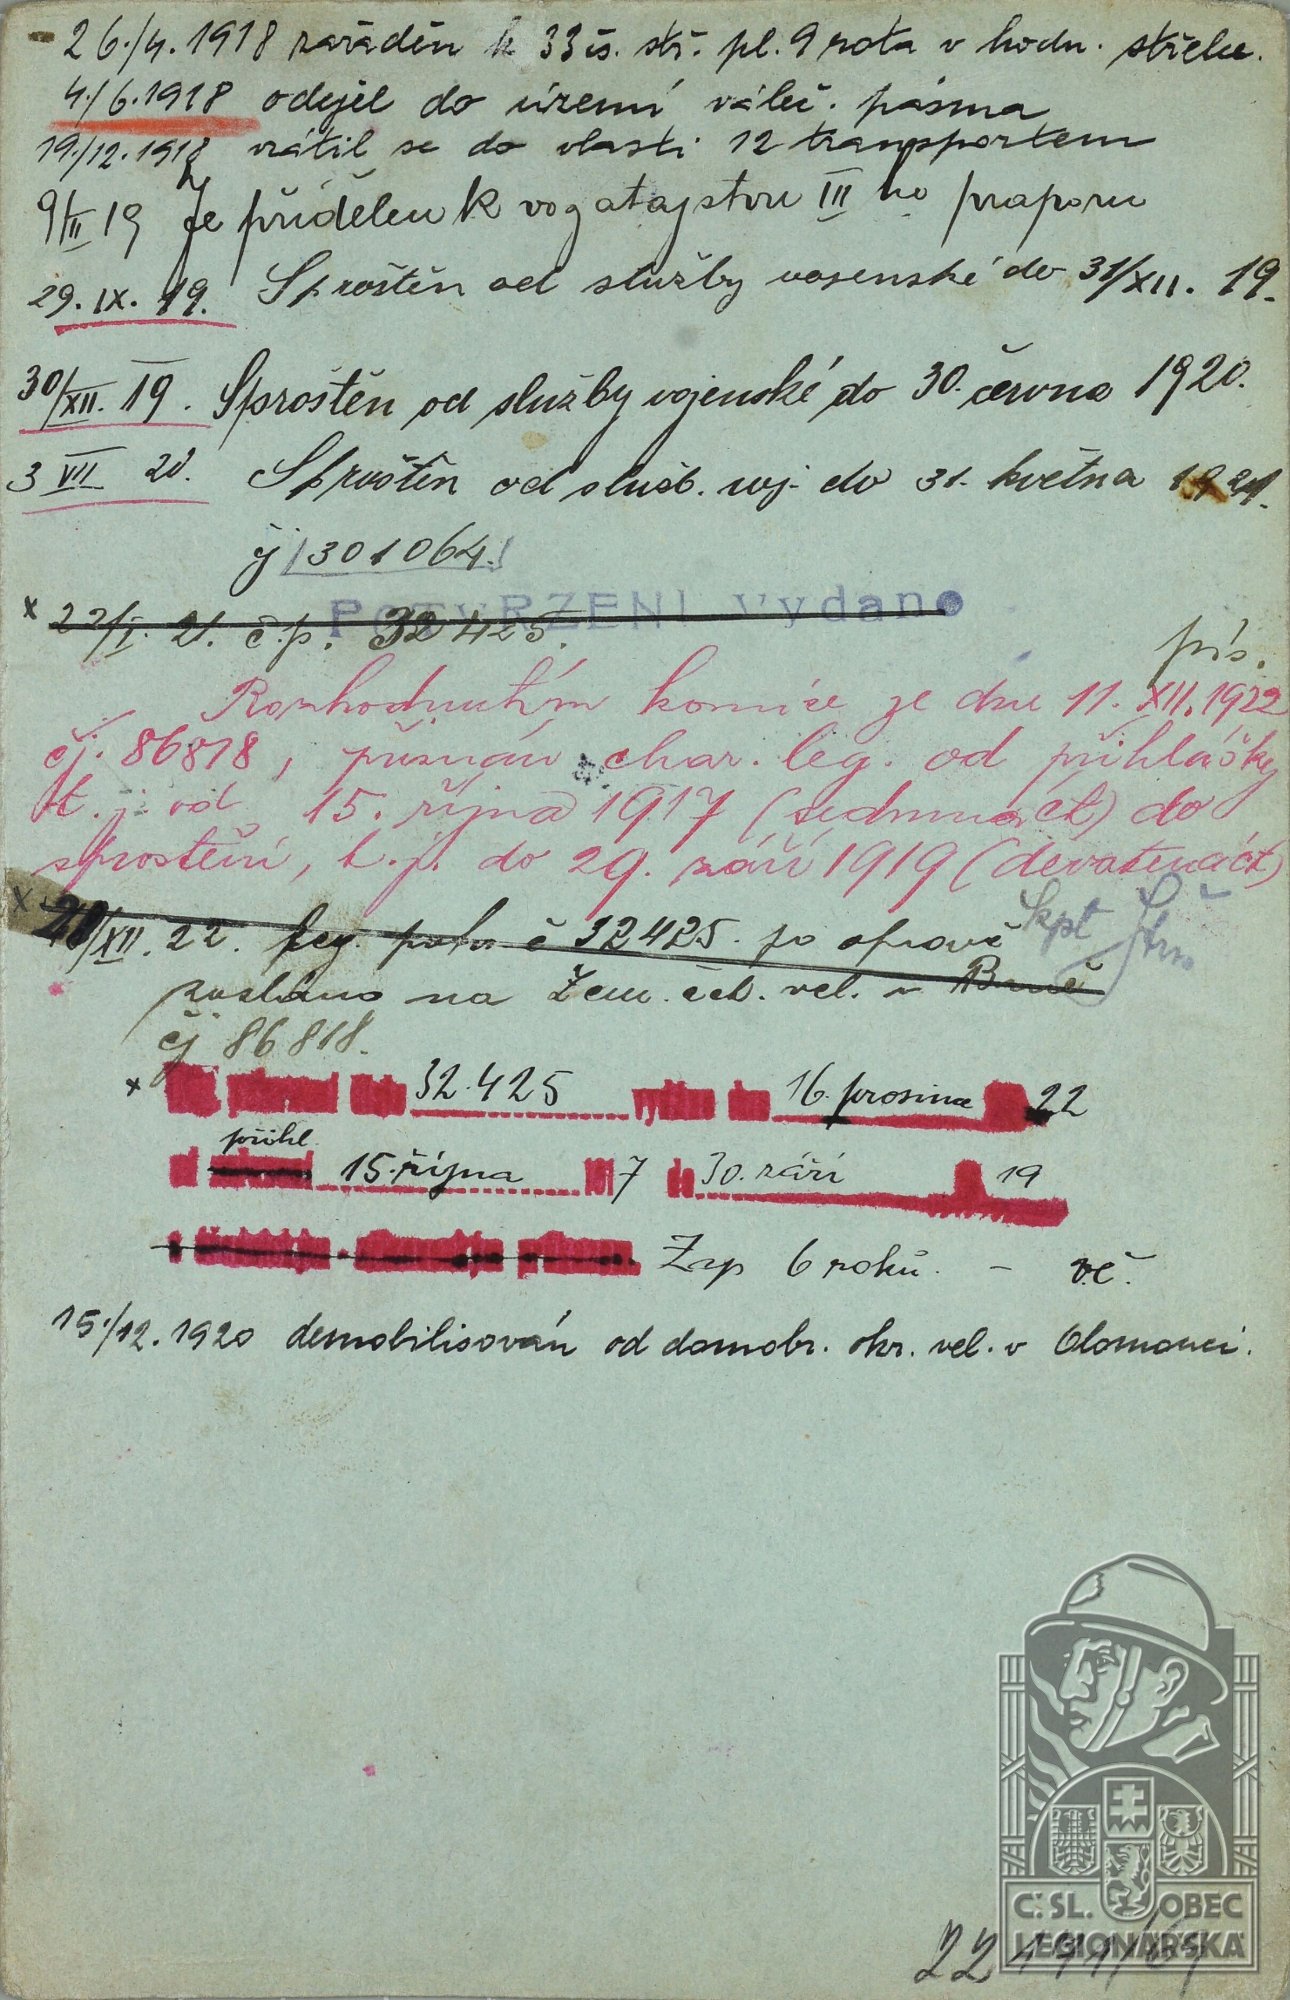 26./4. 1918 zařáděn k 33 čs. stř. pl. 9 rota v hodn. střelce.
4./6. 1918 odejel do území váleč. pásma
19./12. 1918 vrátil se do vlasti 12 transportem
9/II 19 Je přidělen k vozatajstvu III ho praporu
29. IX. 19. Sproštěn od služby vojenské do 31/XII. 19.
30/XII. 19. Sproštěn od služby vojenské do 30. června 1920.
3 VII 20. Sproštěn od služb. voj. do 31. května 1921.
čj 301064.
POTVRZENI vydano
x 22/I. 21. č.p. 32425.
pís.
Rozhodnutím komise ze dne 11. XII. 1922
čj. 86818, přiznán char. leg. od přihlášky
t. j. od 15. října 1917 (sedmnáct) do
sproštění, t. j. do 29. září 1919 (devatenáct)
x /XII. 22. leg. potv. č 32425. po opravě škpt
zasláno na Zem. čet. vel. v Brně
čj 86818.
x 32.425 16. prosince 22
přihl.
15. října 7 30. září 19
Zap 6 roků. - vč.
15./12. 1920 demobilisován od domobr. okr. vel. v Olomouci.
Č.SL. OBEC
LEGIONÁŘSKÁ